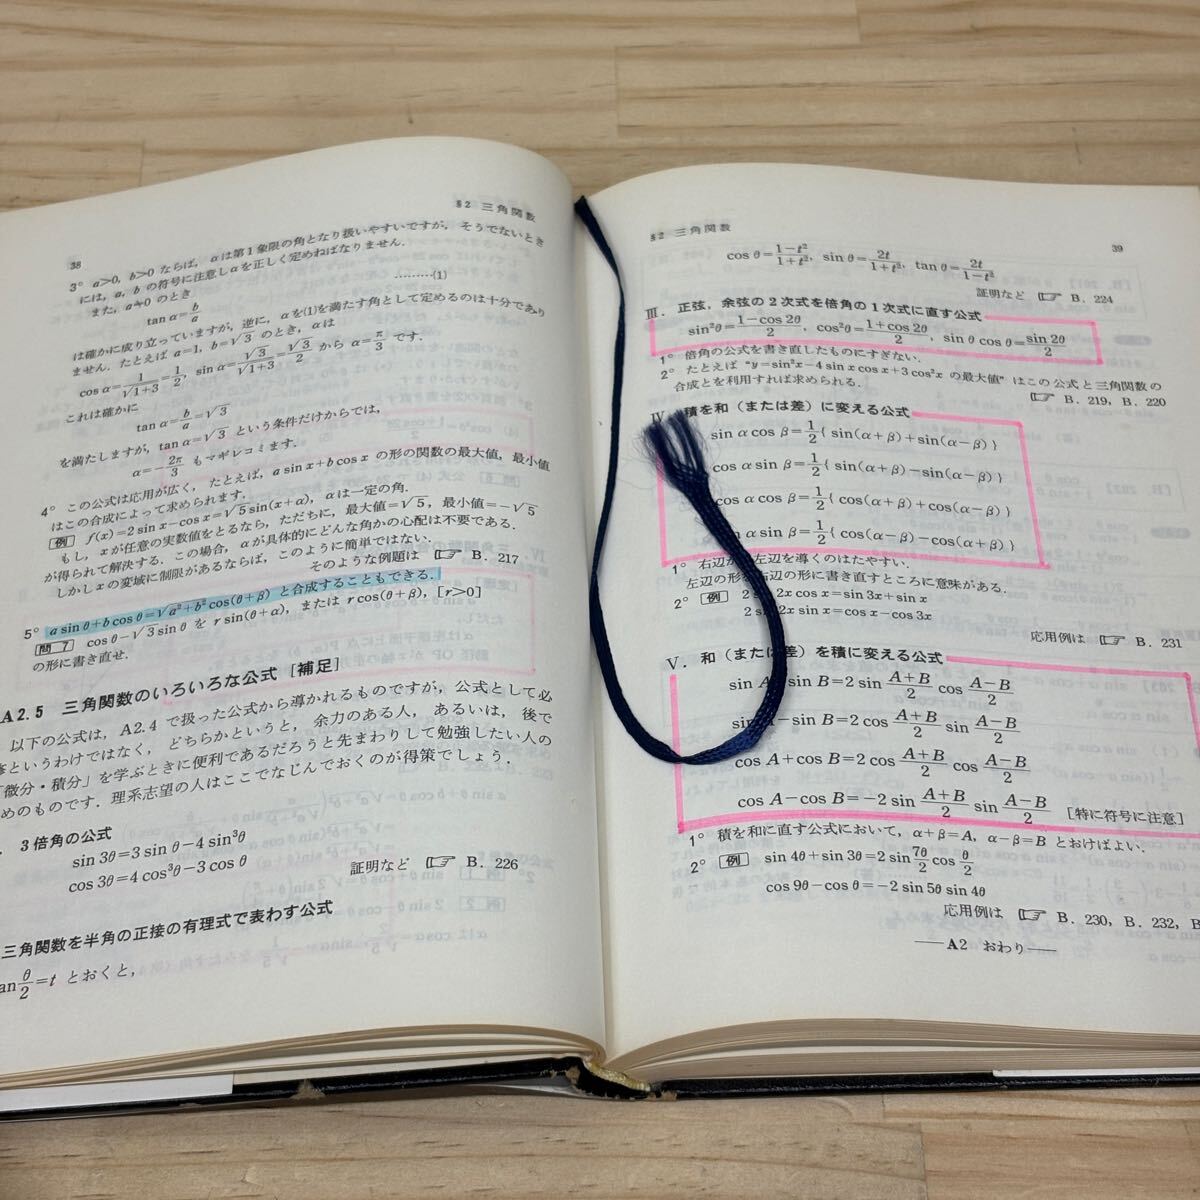 §2 三角関数
38
3° a>0, b>0 ならば, αは第1象限の角となり扱いやすいですが, そうでないとき
には, a, b の符号に注意しαを正しく定めねばなりません.
また, a≠0 のとき
tan α=b/a ………(1)
は確かに成り立っていますが, 逆に, αを(1)を満たす角として定めるのは十分であり
ません. たとえば a=1, b=√3 のとき, αは
cos α=1/√(1+3)=1/2, sin α=√3/√(1+3)=√3/2 から α=π/3 です.
これは確かに
tan α=b/a=√3
を満たしますが, tan α=√3 という条件だけからでは,
α=-2π/3 もマギレコミます.
4° この公式は応用が広く, たとえば, a sin x+b cos x の形の関数の最大値, 最小値
はこの合成によって求められます.
例 f(x)=2 sin x-cos x=√5 sin(x+α), αは一定の角.
もし, xが任意の実数値をとるなら, ただちに, 最大値=√5, 最小値=-√5
が得られて解決する. この場合, αが具体的にどんな角かの心配は不要である.
しかしxの変域に制限があるならば, このように簡単ではない.
そのような例題は ☞ B. 217
5° a sin θ+b cos θ=√(a²+b²) cos(θ+β) と合成することもできる.
問 7 cos θ-√3 sin θ を r sin(θ+α), または r cos(θ+β), [r>0]
の形に書き直せ.
A2.5 三角関数のいろいろな公式 [補足]
以下の公式は, A2.4 で扱った公式から導かれるものですが, 公式として必
というわけではなく, どちらかというと, 余力のある人, あるいは, 後で
「微分・積分」を学ぶときに便利であるだろうと先まわりして勉強したい人の
めのものです. 理系志望の人はここでなじんでおくのが得策でしょう.
3倍角の公式
sin 3θ=3 sin θ-4 sin³θ
cos 3θ=4 cos³θ-3 cos θ
証明など ☞ B. 226
三角関数を半角の正接の有理式で表わす公式
an θ/2=t とおくと,
§2 三角関数
39
cos θ=(1-t²)/(1+t²), sin θ=2t/(1+t²), tan θ=2t/(1-t²)
証明など ☞ B. 224
Ⅲ. 正弦, 余弦の2次式を倍角の1次式に直す公式
sin²θ=(1-cos 2θ)/2, cos²θ=(1+cos 2θ)/2, sin θ cos θ=sin 2θ/2
1° 倍角の公式を書き直したものにすぎない.
2° たとえば “y=sin²x-4 sin x cos x+3 cos²x の最大値” はこの公式と三角関数の
合成とを利用すれば求められる.
☞ B. 219, B. 220
Ⅳ 積を和（または差）に変える公式
sin α cos β=1/2{ sin(α+β)+sin(α-β)}
cos α sin β=1/2{ sin(α+β)-sin(α-β)}
cos α cos β=1/2{ cos(α+β)+cos(α-β)}
sin α sin β=1/2{ cos(α-β)-cos(α+β)}
1° 右辺から左辺を導くのはたやすい.
左辺の形を右辺の形に書き直すところに意味がある.
2° 例 2 s 2x cos x=sin 3x+sin x
2 sin 2x sin x=cos x-cos 3x
応用例は ☞ B. 231
Ⅴ. 和（または差）を積に変える公式
sin A sin B=2 sin (A+B)/2 cos (A-B)/2
sin -sin B=2 cos (A+B)/2 sin (A-B)/2
cos A+cos B=2 cos (A+B)/2 cos (A-B)/2
cos A-cos B=-2 sin (A+B)/2 sin (A-B)/2 [特に符号に注意]
1° 積を和に直す公式において, α+β=A, α-β=B とおけばよい.
2° 例 sin 4θ+sin 3θ=2 sin 7θ/2 cos θ/2
cos 9θ-cos θ=-2 sin 5θ sin 4θ
応用例は ☞ B. 230, B. 232, B
——A2 おわり——